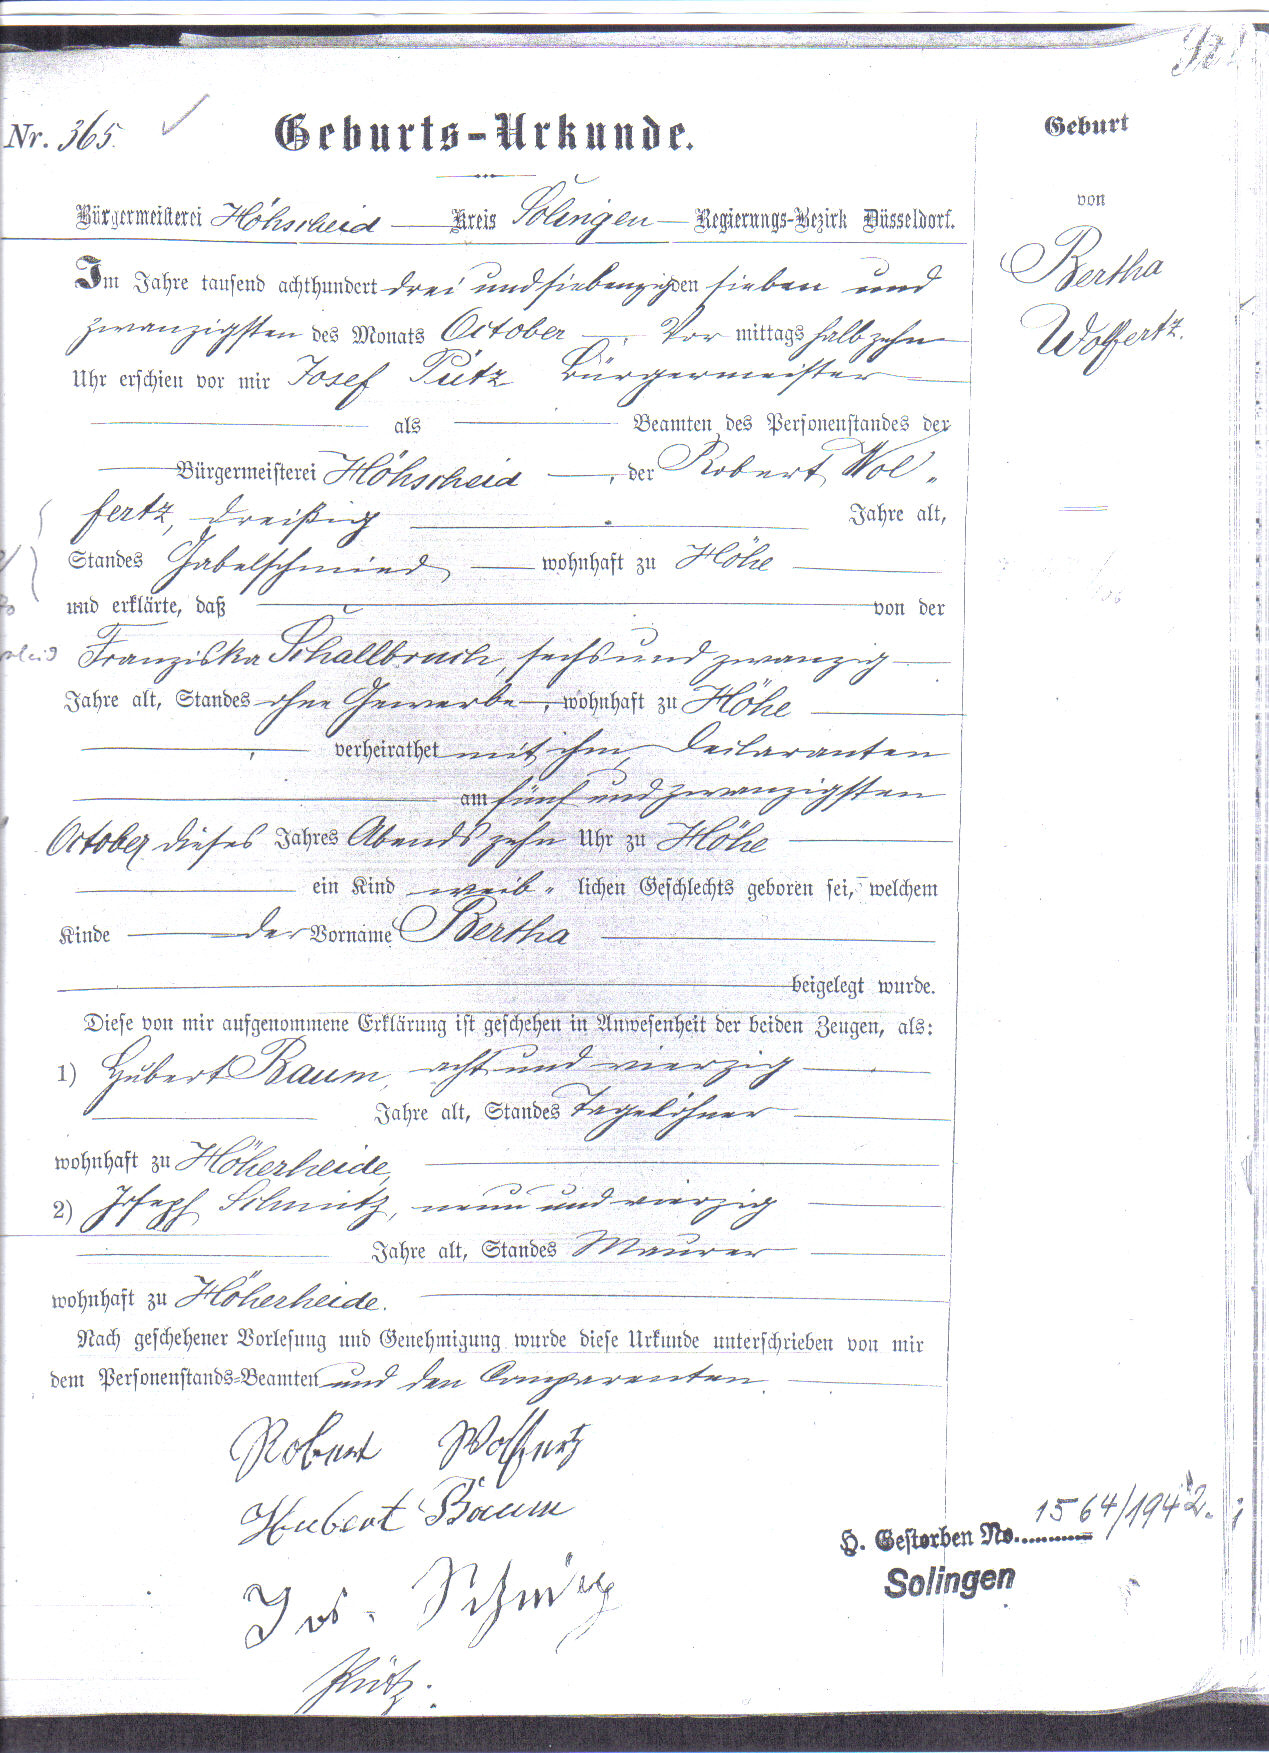 Nr. 365.
Geburts-Urkunde.
Bürgermeisterei Höhscheid Kreis Solingen Regierungs-Bezirk Düsseldorf.
Im Jahre tausend achthundert drei und siebenzig den sieben und
zwanzigsten des Monats October, Vor mittags halb zehn
Uhr erschien vor mir Josef Pütz Bürgermeister
als Beamten des Personenstandes der
Bürgermeisterei Höhscheid, der Robert Wol-
fertz, dreißig Jahre alt,
Standes Gabelschmied wohnhaft zu Höhe
und erklärte, daß von der
Franziska Schallbruch, sechs und zwanzig
Jahre alt, Standes ohne Gewerbe, wohnhaft zu Höhe
, verheirathet mit ihm, Declaranten
am fünf und zwanzigsten
October dieses Jahres Abends zehn Uhr zu Höhe
ein Kind weib- lichen Geschlechts geboren sei, welchem
Kinde der Vorname Bertha
beigelegt wurde.
Diese von mir aufgenommene Erklärung ist geschehen in Anwesenheit der beiden Zeugen, als:
1) Hubert Baum, acht und vierzig
Jahre alt, Standes Tagelöhner
wohnhaft zu Höherheide,
2) Joseph Schmitz, neun und vierzig
Jahre alt, Standes Maurer
wohnhaft zu Höherheide.
Nach geschehener Vorlesung und Genehmigung wurde diese Urkunde unterschrieben von mir
dem Personenstands-Beamten und den Comparenten.
Robert Wolfertz
Hubert Baum
Jos. Schmitz
Pütz.
Geburt
von
Bertha
Wolfertz.
H. Gestorben No. 1564/1942.
Solingen